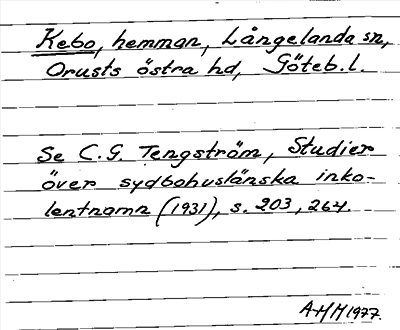 Kebo, hemman, Långelanda sn,
Orusts östra hd, Göteb.l.
Se C.G. Tengström, Studier
över sydbohuslänska inko-
lentnamn (1931), s. 203, 264.
AHH 1977.